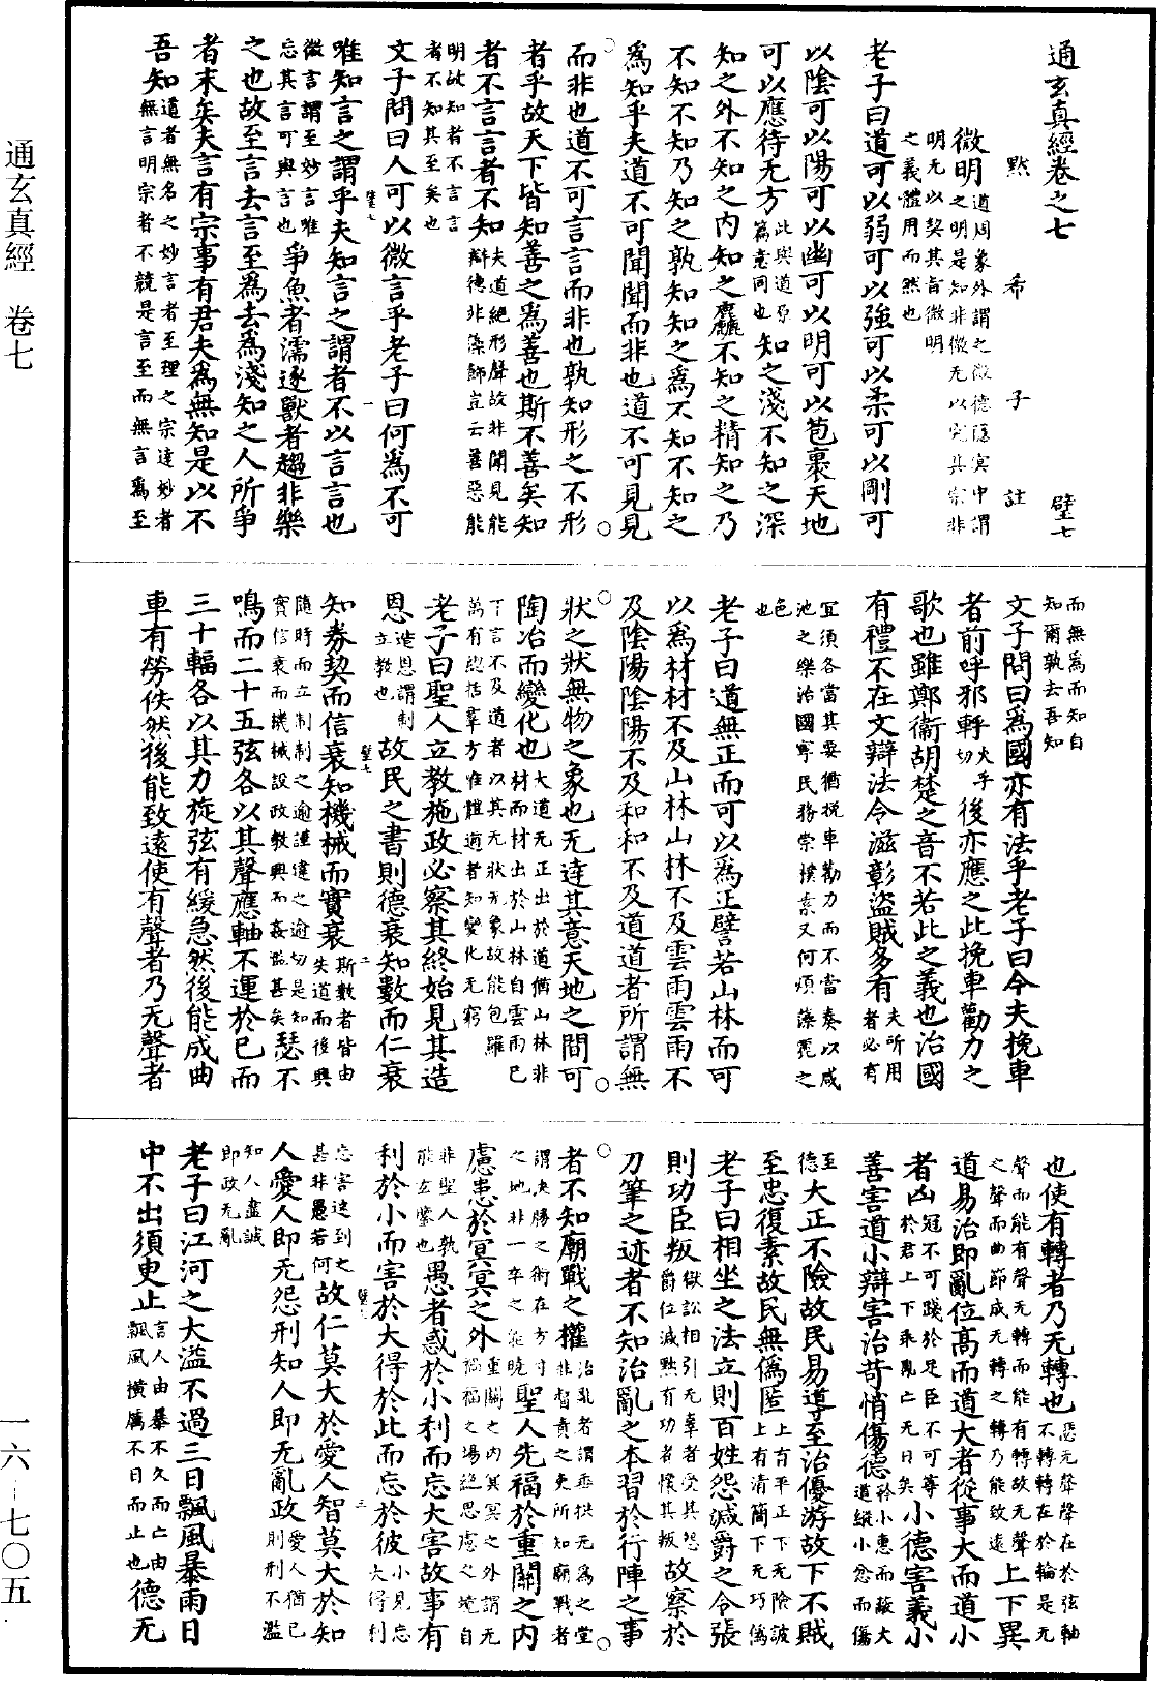 通玄真經卷之七
默希子註 壁七
微明道周象外謂之微德隱冥中謂之明是知非微无以究其宗非明无以契其旨微明之義體用而然也
老子曰道可以弱可以強可以柔可以剛可
以陰可以陽可以幽可以明可以苞裹天地
可以應待无方此與道原篇意同也知之淺不知之深
知之外不知之内知之麤不知之精知之乃
不知不知乃知之孰知知之爲不知不知之
爲知乎夫道不可聞聞而非也道不可見見
而非也道不可言言而非也孰知形之不形
者乎故天下皆知善之爲善也斯不善矣知
者不言言者不知夫道絶形聲故非聞見能辯德非藻飾豈云善惡能明故知者不言言者不知其至矣也
文子問曰人可以微言乎老子曰何爲不可
唯知言之謂乎夫知言之謂者不以言言也
微言謂至妙言唯忘其言可與言也爭魚者濡逐獸者趨非樂
之也故至言去言至爲去爲淺知之人所爭
者末矣夫言有宗事有君夫爲無知是以不
吾知道者無名之妙言者至理之宗達妙者無言明宗者不競是言至而無言爲至
而無爲而知自知爾孰去吾知
文子問曰爲國亦有法乎老子曰今夫挽車
者前呼邪軤火乎切後亦應之此挽車勸力之
歌也雖鄭衞胡楚之音不若此之義也治國
有禮不在文辯法令滋彰盜賊多有夫所用者必有
宜須各當其要猶挽車勸力而不當奏以咸池之樂治國寧民務崇樸素又何煩藻麗之色也
老子曰道無正而可以爲正譬若山林而可
以爲材材不及山林山林不及雲雨雲雨不
及陰陽陰陽不及和和不及道道者所謂無
狀之狀無物之象也无達其意天地之間可
陶冶而變化也大道无正出於道猶山林非材而材出於山林自雲雨已下言不及道者以其无狀无象故能包羅萬有總括羣方惟體道者知變化无窮
老子曰聖人立教施政必察其終始見其造
恩造恩謂制立教也故民之書則德衰知數而仁衰
知券契而信衰知機械而實衰斯數者皆由失道而後興
隨時而立制制之逾謹違之逾切是知實信衰而機械設政教興而姦濫甚矣瑟不
鳴而二十五弦各以其聲應軸不運於已而
三十輻各以其力旋弦有緩急然後能成曲
車有勞佚然後能致遠使有聲者乃无聲者
也使有轉者乃无轉也惡无聲聲在於弦軸不轉轉在於輪是无聲而能有聲无轉而能有轉故无聲之聲而曲節成无轉之轉乃能致遠上下異
道易治即亂位高而道大者從事大而道小
者凶冠不可踐於足臣不可等於君上下乖亂亡无日矣小德害義小
善害道小辯害治苛悄傷德矜小惠而蔽大道縱小忿而傷至德
大正不險故民易導至治優游故下不賊
至忠復素故民無僞匿上有平正下无險詖上有清簡下无巧僞
老子曰相坐之法立則百姓怨減爵之令張
則功臣叛獄訟相引无辜者受其怨爵位減黜有功者懷其叛故察於
刀筆之迹者不知治亂之本習於行陣之事
者不知廟戰之權治亂者謂垂拱无爲之堂非督責之吏所知廟戰者謂決勝之術在方寸之地非一卒之能曉聖人先福於重關之内
慮患於冥冥之外重關之内冥冥之外謂无禍福之場絶思慮之境自非聖人孰能玄鑒也愚者惑於小利而忘大害故事有
利於小而害於大得於此而忘於彼小見忘大得利忘害迷到之甚非愚若何故仁莫大於愛人智莫大於知
人愛人即无怨刑知人即无亂政愛人猶已則刑不濫知人盡誠即政无亂
老子曰江河之大溢不過三日飄風暴雨日
中不出須臾止言人由暴不久而亡由飄風橫厲不日而止也德无
通玄真經 卷七
一六—七〇五